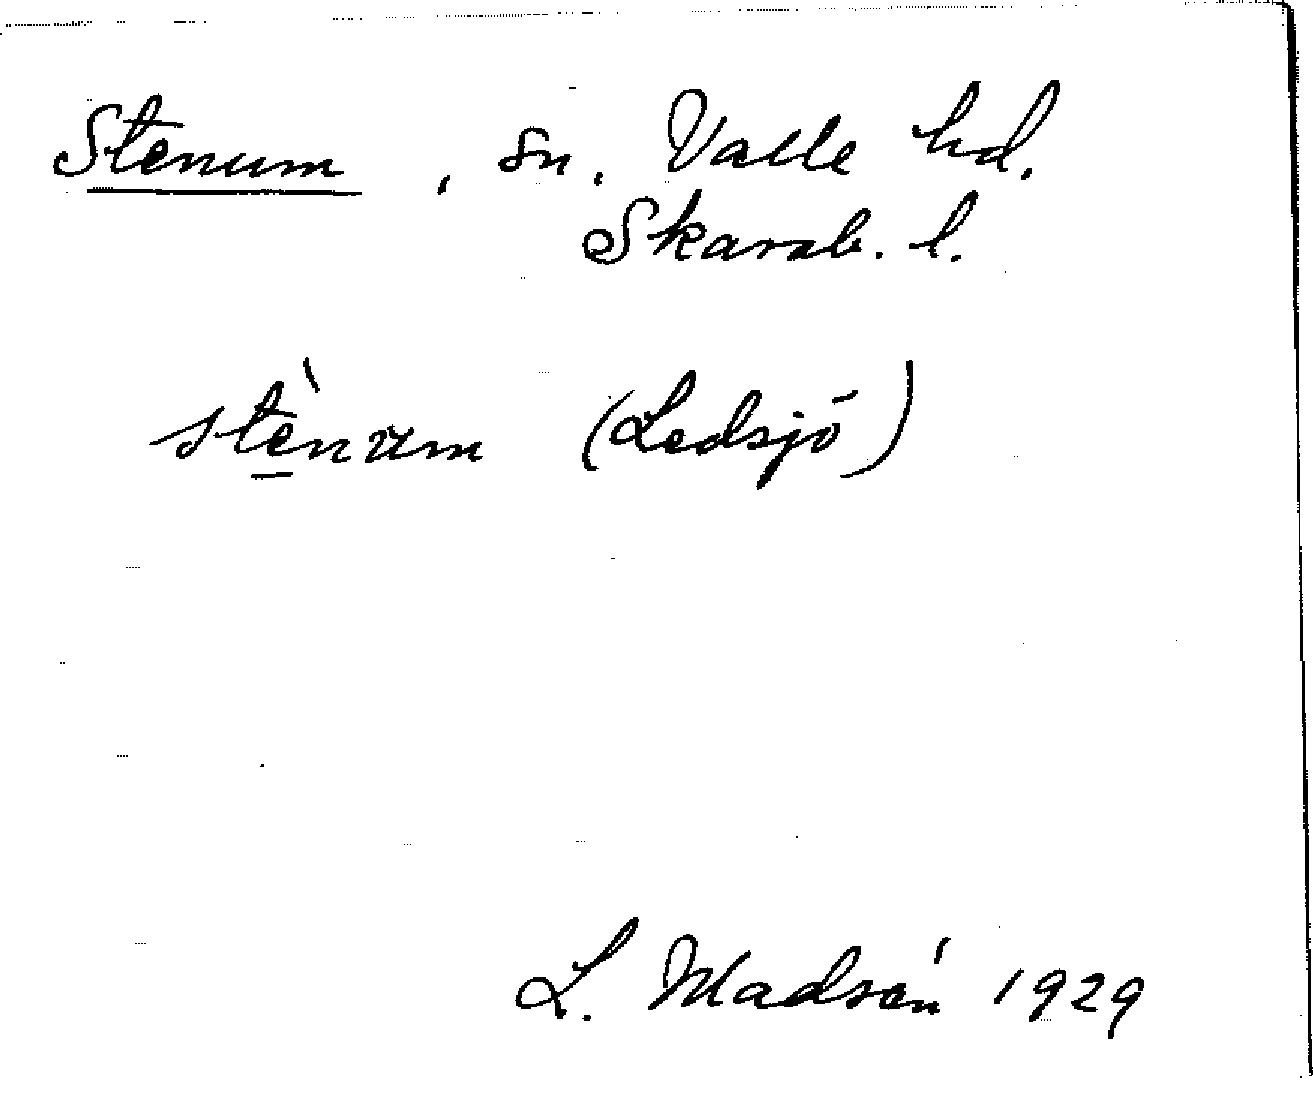 Stenum, sn, Valle hd.
Skarab. l.
stè̱num (Ledsjö)
L. Madsén 1929